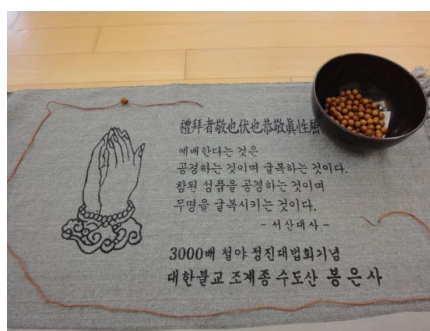 禮拜者敬也伏也恭敬眞性屈
예배한다는 것은
공경하는 것이며 굴복하는 것이다.
참된 성품을 공경하는 것이며
무명을 굴복시키는 것이다.
- 서산대사 -
3000배 철야 정진대법회기념
대한불교 조계종 수도산 봉은사